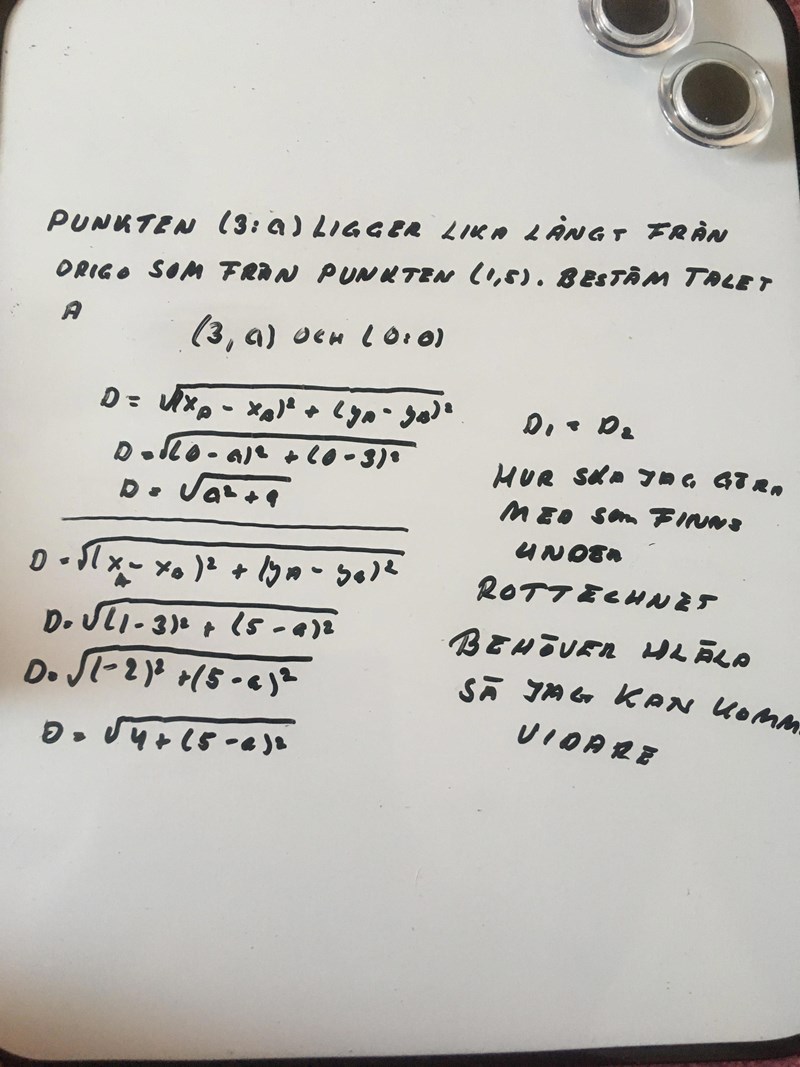 PUNKTEN (3:a) LIGGER LIKA LÅNGT FRÅN
ORIGO SOM FRÅN PUNKTEN (1,5). BESTÄM TALET
A
(3, a) OCH (0:0)
D = √(x_A - x_B)² + (y_A - y_B)²
D = √(0 - a)² + (0 - 3)²
D = √a² + 9
D = √(x_A - x_B)² + (y_A - y_B)²
D = √(1 - 3)² + (5 - a)²
D = √(-2)² + (5 - a)²
D = √4 + (5 - a)²
D₁ = D₂
HUR SKA JAG GÖRA
MED SOM FINNS
UNDER
ROTTECHNET
BEHÖVER HLÄLA
SÅ JAG KAN KOMMA
VIDARE